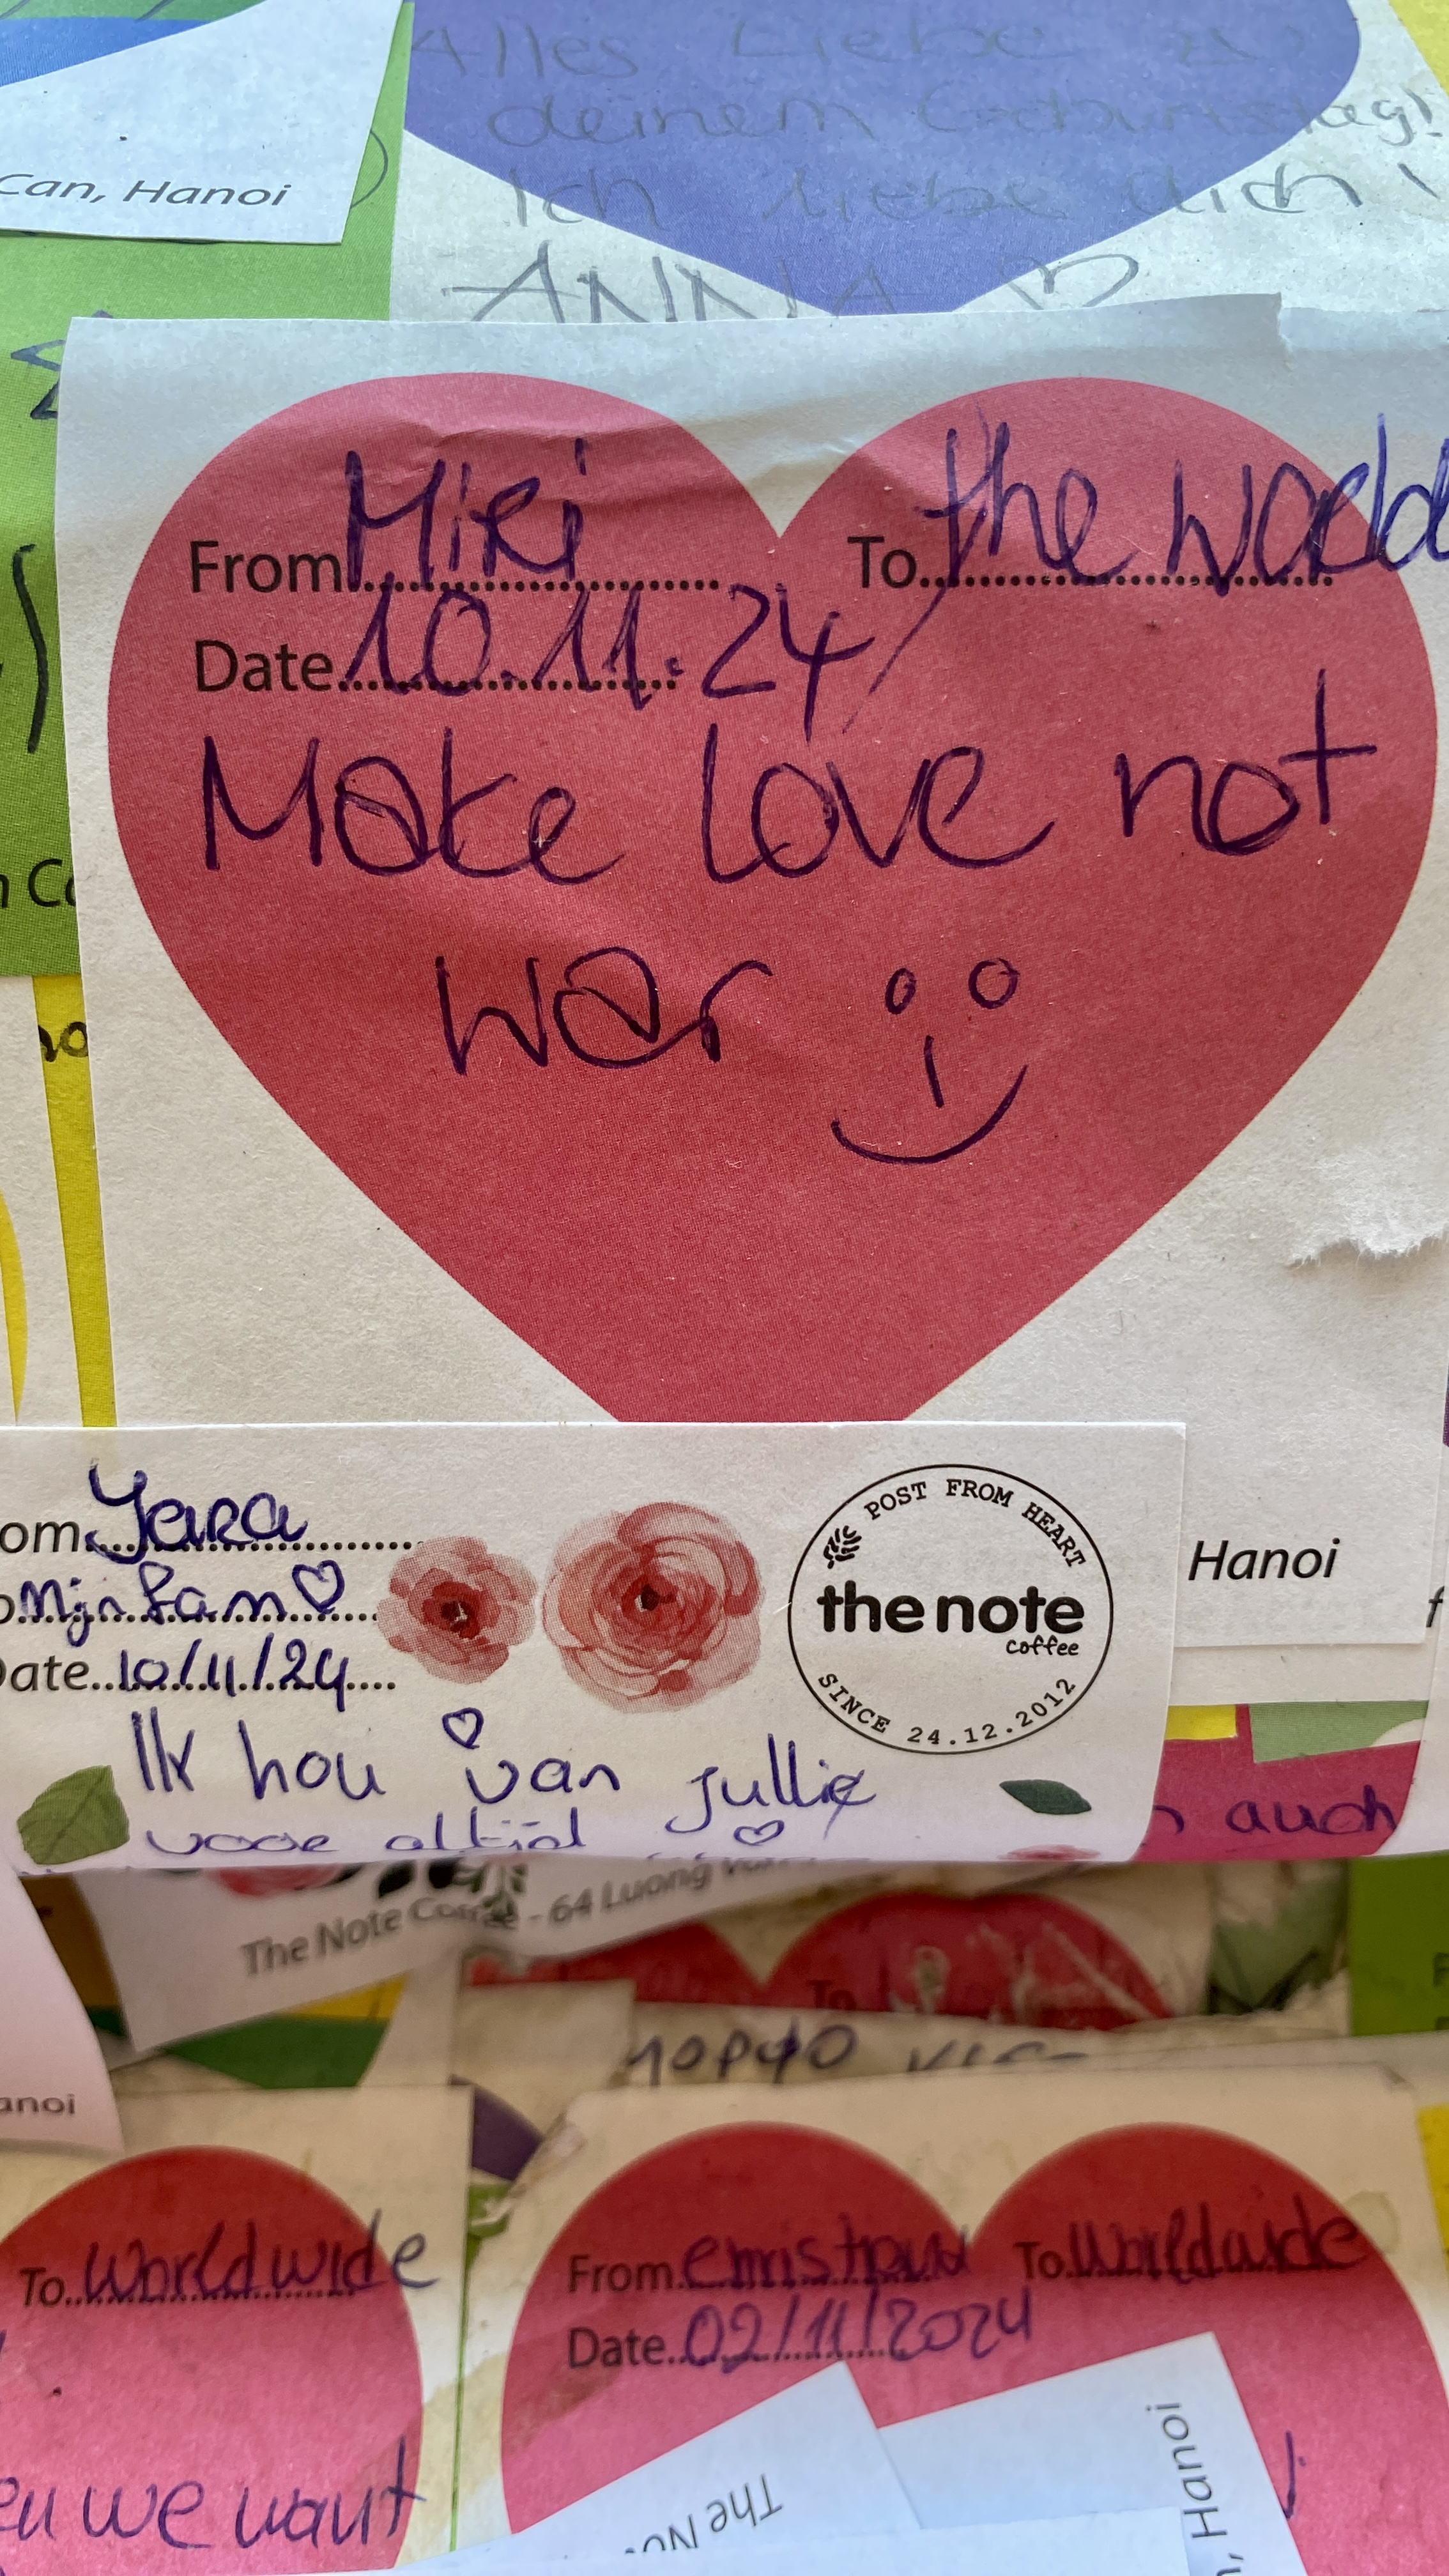 Alles Liebe zu
deinem Geburtstag!
Ich liebe dich!
ANNA
Can, Hanoi
From Miri To the world
Date 10.11.24
Make love not
war
Hanoi
om Yara
Mijn fam
Date 10/11/24
Ik hou van jullie
voor altijd
POST FROM HEART
the note
coffee
SINCE 24.12.2012
auch
The Note Coffee - 64 Luong Van
To
anoi
To worldwide
we want
From To Worldwide
Date 02/11/2024
The No
Hanoi